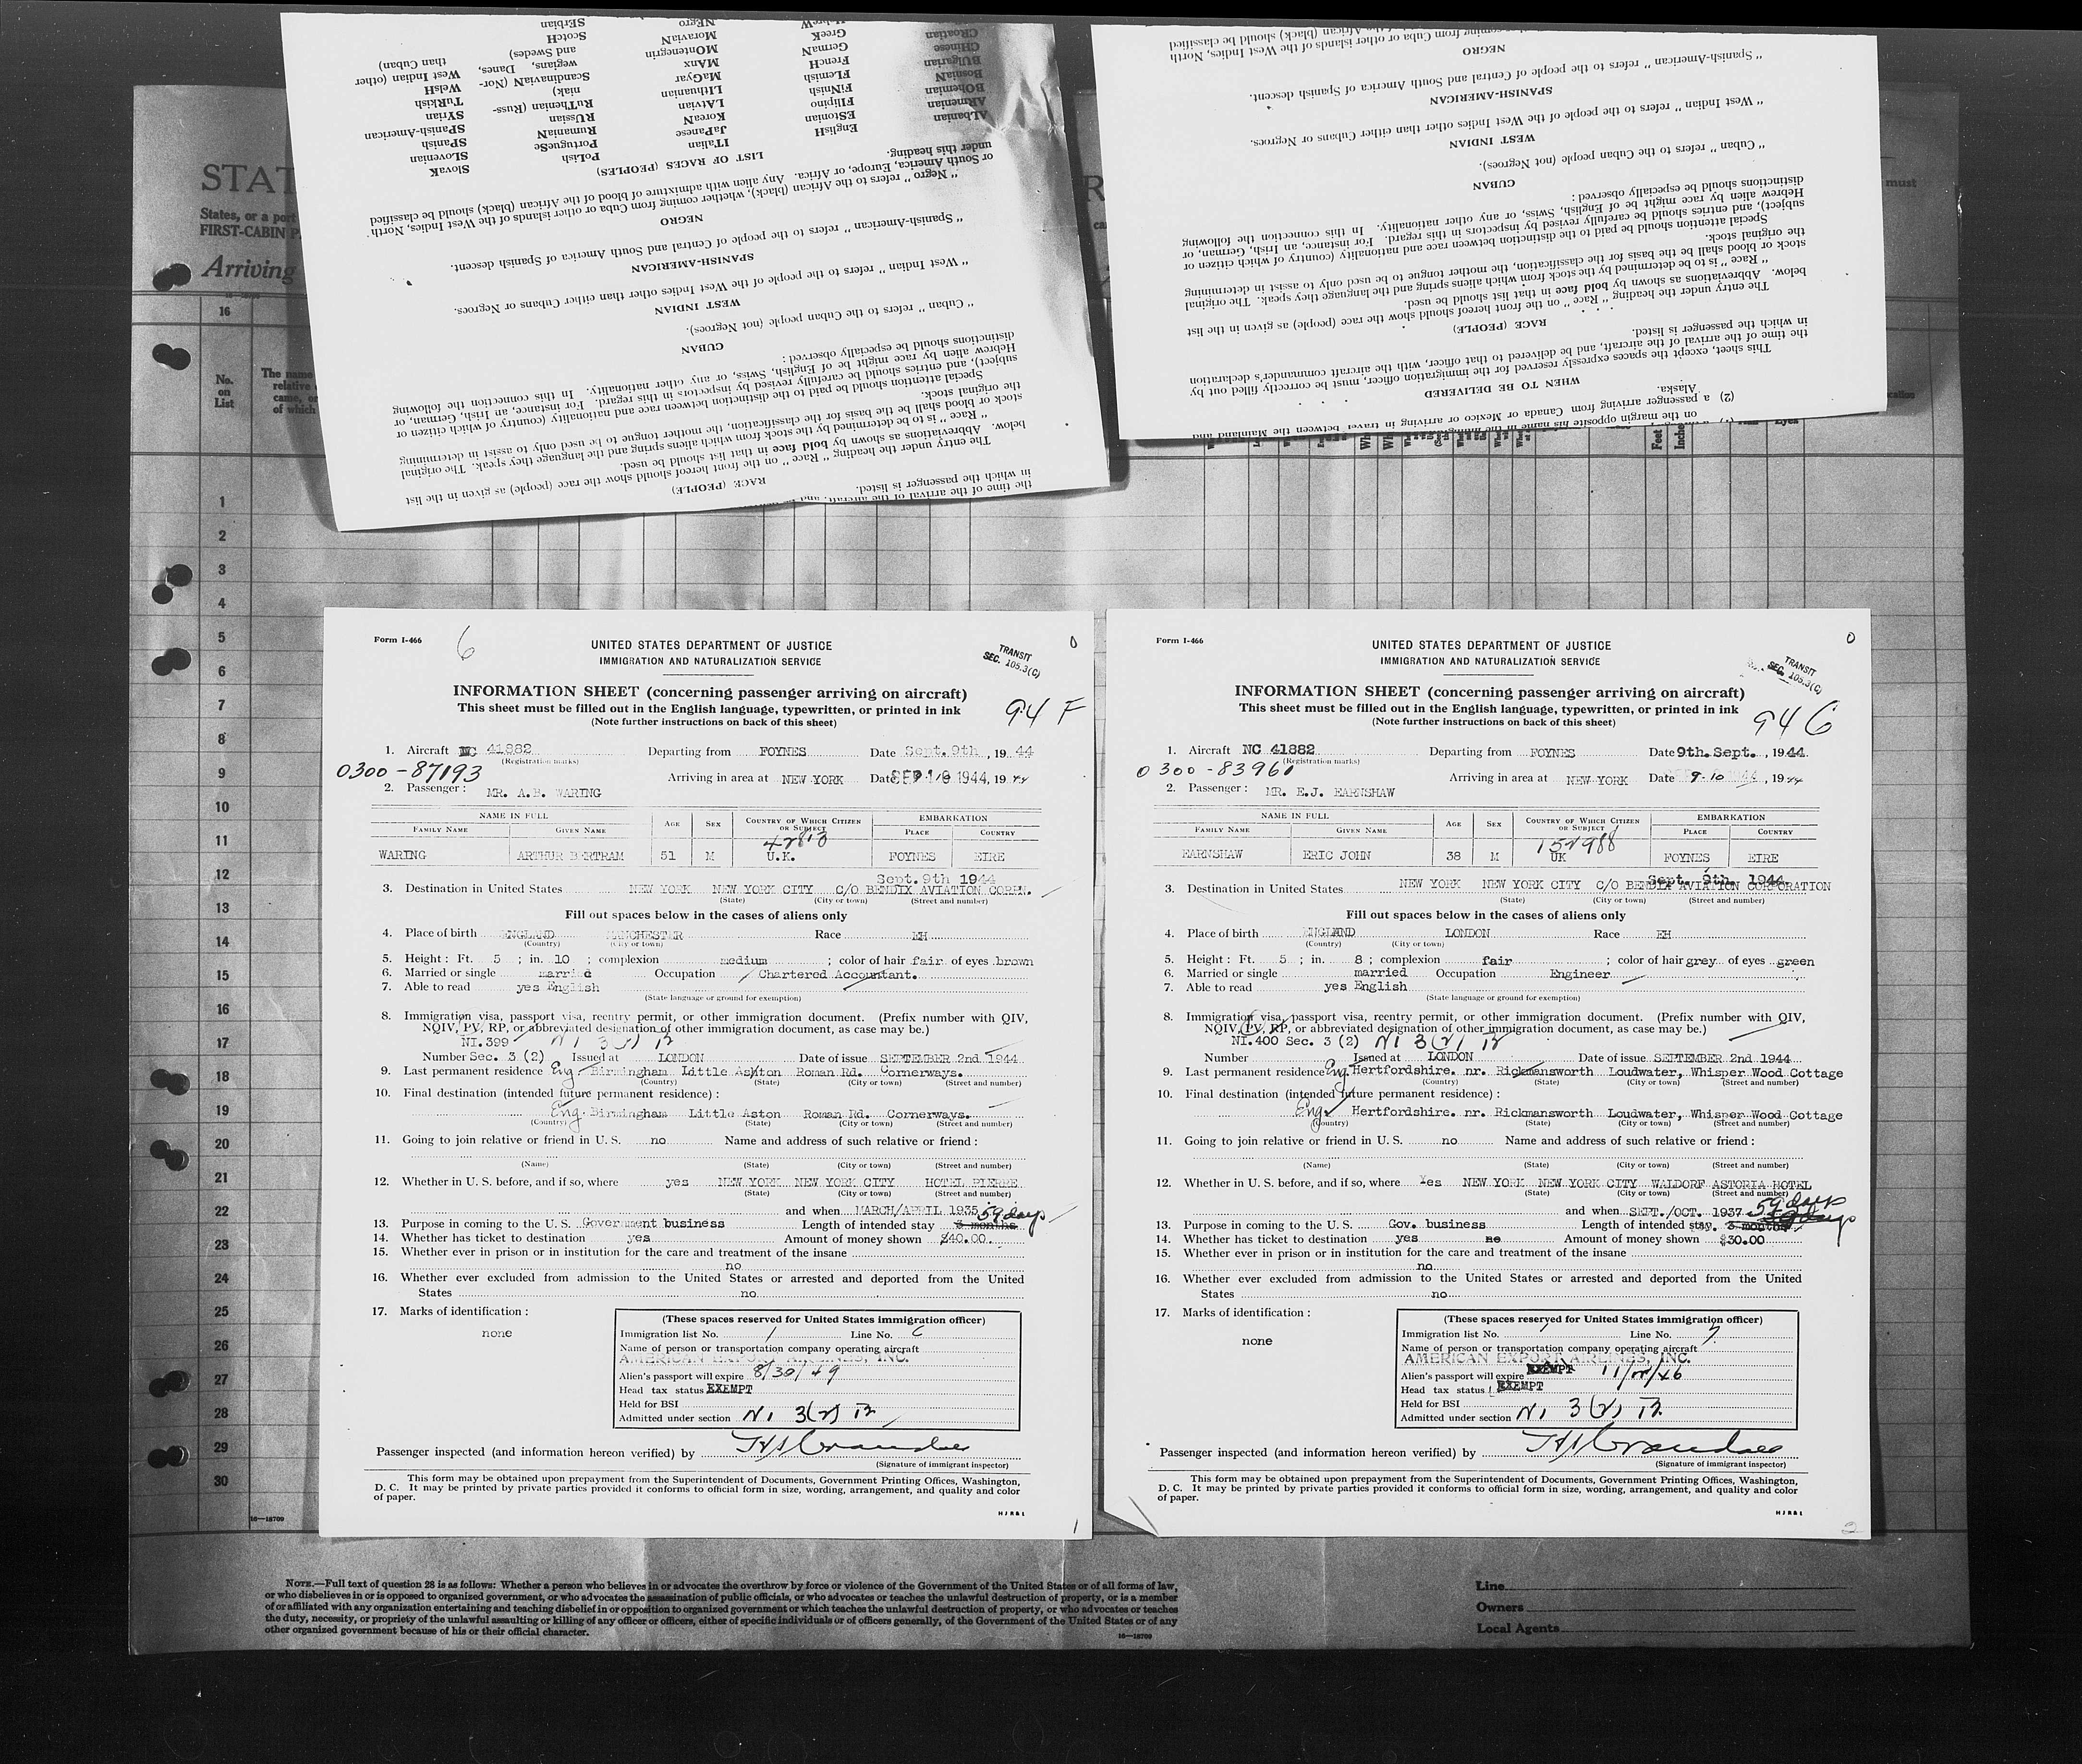 STAT
States, or a port
FIRST-CABIN P
Arriving
16
No. on List
The name
relative
came, or
of which
must
in which the passenger is listed.
RACE (PEOPLE)
The entry under the heading "Race" on the front hereof should show the race (people) as given in the list
below. Abbreviations as shown by bold face in that list should be used.
"Race" is to be determined by the stock from which aliens spring and the language they speak. The original
stock or blood shall be the basis for the classification, the mother tongue to be used only to assist in determining
the original stock.
Special attention should be paid to the distinction between race and nationality (country of which citizen or
subject), and entries should be carefully revised by inspectors in this regard. For instance, an Irish, German, or
Hebrew alien by race might be of English, Swiss, or any other nationality. In this connection the following
distinctions should be especially observed:
CUBAN
"Cuban" refers to the Cuban people (not Negroes).
WEST INDIAN
"West Indian" refers to the people of the West Indies other than either Cubans or Negroes.
SPANISH-AMERICAN
"Spanish-American" refers to the people of Central and South America of Spanish descent.
NEGRO
"Negro" refers to the African (black), whether coming from Cuba or other islands of the West Indies, North
or South America, Europe, or Africa. Any alien with admixture of blood of the African (black) should be classified
under this heading.
LIST OF RACES (PEOPLES)
ALbanian EnglisH ITalian PoLish SlovaK
ARmenian EStonian JaPanese PortugueSe SLovenian
BOhemian FIlipino KoreaN RumaniaN SPanish
BosniaN FiNnish LAtvian RUssian SPanish-American
BUlgarian FLemish LIthuanian RuThenian (Russniak) SYrian
CHinese FrencH MaGyar Scandinavian (Norwegians, Danes, and Swedes) TuRkish
CRoatian GermaN MAnx ScotcH WelsH
GreeK MOntenegrin SErbian West Indian (other than Cuban)
MoraviaN
NEgro
on the margin opposite his name in the
(2) a passenger arriving from Canada or Mexico or arriving in travel between the Mainland and
Alaska.
WHEN TO BE DELIVERED
This sheet, except the spaces expressly reserved for the immigration officer, must be correctly filled out by
the time of the arrival of the aircraft, and be delivered to that officer, with the aircraft commander's declaration
in which the passenger is listed.
RACE (PEOPLE)
The entry under the heading "Race" on the front hereof should show the race (people) as given in the list
below. Abbreviations as shown by bold face in that list should be used.
"Race" is to be determined by the stock from which aliens spring and the language they speak. The original
stock or blood shall be the basis for the classification, the mother tongue to be used only to assist in determining
the original stock.
Special attention should be paid to the distinction between race and nationality (country of which citizen or
subject), and entries should be carefully revised by inspectors in this regard. For instance, an Irish, German, or
Hebrew alien by race might be of English, Swiss, or any other nationality. In this connection the following
distinctions should be especially observed:
CUBAN
"Cuban" refers to the Cuban people (not Negroes).
WEST INDIAN
"West Indian" refers to the people of the West Indies other than either Cubans or Negroes.
SPANISH-AMERICAN
"Spanish-American" refers to the people of Central and South America of Spanish descent.
NEGRO
coming from Cuba or other islands of the West Indies, North
African (black) should be classified
Feet Inches Eyes
1
2
3
4
5
6
7
8
9
10
11
12
13
14
15
16
17
18
19
20
21
22
23
24
25
26
27
28
29
30
16—18709
Form I-466 6 0
UNITED STATES DEPARTMENT OF JUSTICE
IMMIGRATION AND NATURALIZATION SERVICE
TRANSIT
SEC. 105.3(C)
INFORMATION SHEET (concerning passenger arriving on aircraft)
This sheet must be filled out in the English language, typewritten, or printed in ink
(Note further instructions on back of this sheet)
94 F
1. Aircraft NC 41882 Departing from FOYNES Date Sept. 9th, 1944
(Registration marks)
0300-87193 Arriving in area at NEW YORK Date SEP 10 1944, 1944
2. Passenger: MR. A.B. WARING
NAME IN FULL AGE SEX COUNTRY OF WHICH CITIZEN OR SUBJECT EMBARKATION
FAMILY NAME GIVEN NAME PLACE COUNTRY
42813
WARING ARTHUR BERTRAM 51 M U.K. FOYNES EIRE
Sept. 9th 1944
3. Destination in United States NEW YORK NEW YORK CITY C/O BENDIX AVIATION CORPN.
(State) (City or town) (Street and number)
Fill out spaces below in the cases of aliens only
4. Place of birth ENGLAND MANCHESTER Race EH
(Country) (City or town)
5. Height: Ft. 5; in. 10; complexion medium; color of hair fair of eyes brown
6. Married or single married Occupation Chartered Accountant.
7. Able to read yes English
(State language or ground for exemption)
8. Immigration visa, passport visa, reentry permit, or other immigration document. (Prefix number with QIV,
NQIV, PV, RP, or abbreviated designation of other immigration document, as case may be.)
NI.399 NI 3(2) B
Number Sec. 3 (2) Issued at LONDON Date of issue SEPTEMBER 2nd 1944
9. Last permanent residence Eng Birmingham Little Aston Roman Rd. Cornerways.
(Country) (State) (City or town) (Street and number)
10. Final destination (intended future permanent residence):
Eng. Birmingham Little Aston Roman Rd. Cornerways.
(Country) (State) (City or town) (Street and number)
11. Going to join relative or friend in U. S. no Name and address of such relative or friend:
(Name) (State) (City or town) (Street and number)
12. Whether in U. S. before, and if so, where yes NEW YORK NEW YORK CITY HOTEL PIERRE
(State) (City or town) (Street and number)
and when MARCH/APRIL 1935 59 days
13. Purpose in coming to the U. S. Government business Length of intended stay 3 months
14. Whether has ticket to destination yes Amount of money shown $40.00.
15. Whether ever in prison or in institution for the care and treatment of the insane
no
16. Whether ever excluded from admission to the United States or arrested and deported from the United
States no
17. Marks of identification:
none
(These spaces reserved for United States immigration officer)
Immigration list No. 1 Line No. 6
Name of person or transportation company operating aircraft
AMERICAN EXPORT AIRLINES, INC.
Alien's passport will expire 8/30/49
Head tax status EXEMPT
Held for BSI
Admitted under section NI 3(2) B
Passenger inspected (and information hereon verified) by
(Signature of immigrant inspector)
This form may be obtained upon prepayment from the Superintendent of Documents, Government Printing Offices, Washington,
D. C. It may be printed by private parties provided it conforms to official form in size, wording, arrangement, and quality and color
of paper.
H J R & L
1
Form I-466 0
UNITED STATES DEPARTMENT OF JUSTICE
IMMIGRATION AND NATURALIZATION SERVICE
TRANSIT
SEC. 105.3(C)
INFORMATION SHEET (concerning passenger arriving on aircraft)
This sheet must be filled out in the English language, typewritten, or printed in ink
(Note further instructions on back of this sheet)
94 G
1. Aircraft NC 41882 Departing from FOYNES Date 9th. Sept., 1944.
(Registration marks)
0300-83961 Arriving in area at NEW YORK Date 9-10 1944, 1944
2. Passenger: MR. E.J. EARNSHAW
NAME IN FULL AGE SEX COUNTRY OF WHICH CITIZEN OR SUBJECT EMBARKATION
FAMILY NAME GIVEN NAME PLACE COUNTRY
152988
EARNSHAW ERIC JOHN 38 M UK FOYNES EIRE
Sept. 9th. 1944
3. Destination in United States NEW YORK NEW YORK CITY C/O BENDIX AVIATION CORPORATION
(State) (City or town) (Street and number)
Fill out spaces below in the cases of aliens only
4. Place of birth ENGLAND LONDON Race EH
(Country) (City or town)
5. Height: Ft. 5; in. 8; complexion fair; color of hair grey of eyes green
6. Married or single married Occupation Engineer
7. Able to read yes English
(State language or ground for exemption)
8. Immigration visa, passport visa, reentry permit, or other immigration document. (Prefix number with QIV,
NQIV, PV, RP, or abbreviated designation of other immigration document, as case may be.)
NI.400 Sec. 3 (2) NI 3(2) B
Number Issued at LONDON Date of issue SEPTEMBER 2nd 1944
9. Last permanent residence Eng. Hertfordshire. nr. Rickmansworth Loudwater, Whisper Wood Cottage
(Country) (State) (City or town) (Street and number)
10. Final destination (intended future permanent residence):
Eng. Hertfordshire. nr. Rickmansworth Loudwater, Whisper Wood Cottage
(Country) (State) (City or town) (Street and number)
11. Going to join relative or friend in U. S. no Name and address of such relative or friend:
(Name) (State) (City or town) (Street and number)
12. Whether in U. S. before, and if so, where Yes NEW YORK NEW YORK CITY WALDORF ASTORIA HOTEL
(State) (City or town) (Street and number)
and when SEPT./OCT. 1937 59 days
13. Purpose in coming to the U. S. Gov. business Length of intended stay. 3 months 59 days
14. Whether has ticket to destination yes no Amount of money shown $30.00
15. Whether ever in prison or in institution for the care and treatment of the insane
no
16. Whether ever excluded from admission to the United States or arrested and deported from the United
States no
17. Marks of identification:
none
(These spaces reserved for United States immigration officer)
Immigration list No. 1 Line No. 7
Name of person or transportation company operating aircraft
AMERICAN EXPORT AIRLINES, INC.
Alien's passport will expire EXEMPT
Head tax status EXEMPT
Held for BSI
Admitted under section NI 3(2) B
Passenger inspected (and information hereon verified) by
(Signature of immigrant inspector)
This form may be obtained upon prepayment from the Superintendent of Documents, Government Printing Offices, Washington,
D. C. It may be printed by private parties provided it conforms to official form in size, wording, arrangement, and quality and color
of paper.
H J R & L
2
NOTE.—Full text of question 28 is as follows: Whether a person who believes in or advocates the overthrow by force or violence of the Government of the United States or of all forms of law,
or who disbelieves in or is opposed to organized government, or who advocates the assassination of public officials, or who advocates or teaches the unlawful destruction of property, or is a member
of or affiliated with any organization entertaining and teaching disbelief in or opposition to organized government or which teaches the unlawful destruction of property, or who advocates or teaches
the duty, necessity, or propriety of the unlawful assaulting or killing of any officer or officers, either of specific individuals or of officers generally, of the Government of the United States or of any
other organized government because of his or their official character.
16—18709
Line
Owners
Local Agents